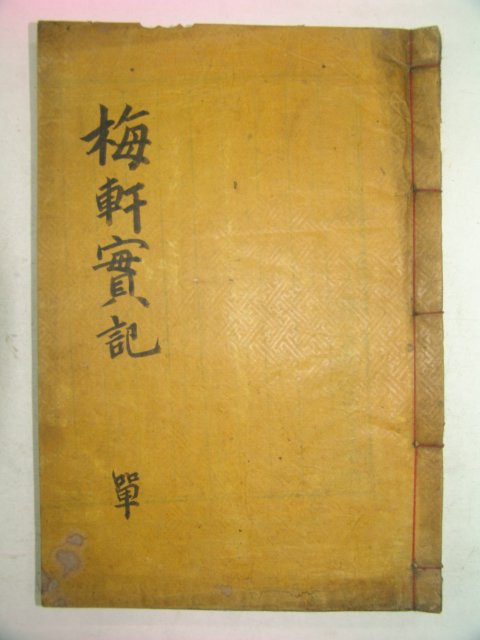 梅軒實記
單